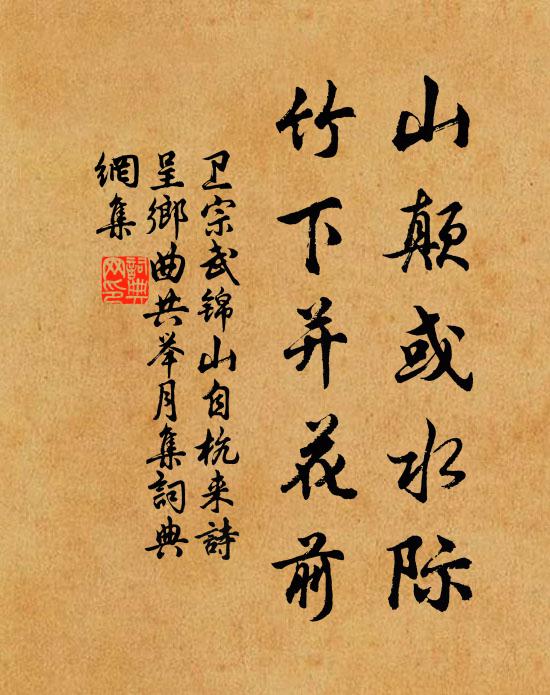 山颠或水际
竹下并花前
卫宗武锦山自杭来詩
呈鄉曲共举月集詞典
網集
詞典
网印